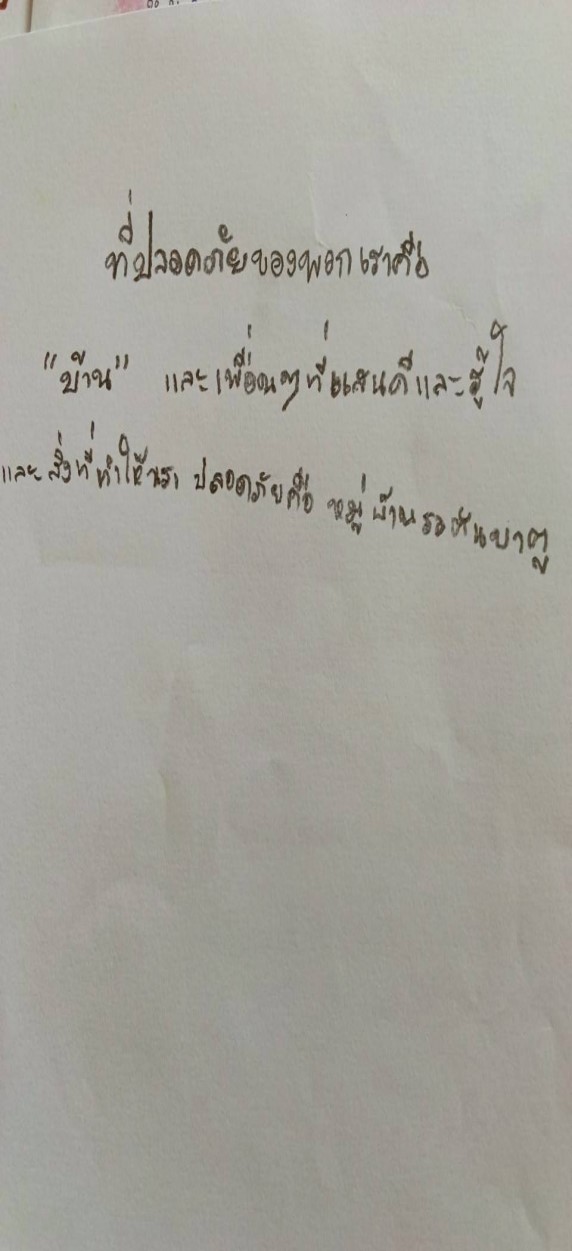 ที่ปลอดภัยของพวกเราคือ
"บ้าน" และเพื่อนๆที่แสนดีและรู้ใจ
และสิ่งที่ทำให้เรา ปลอดภัยคือ หมู่บ้านรอตันบาตู